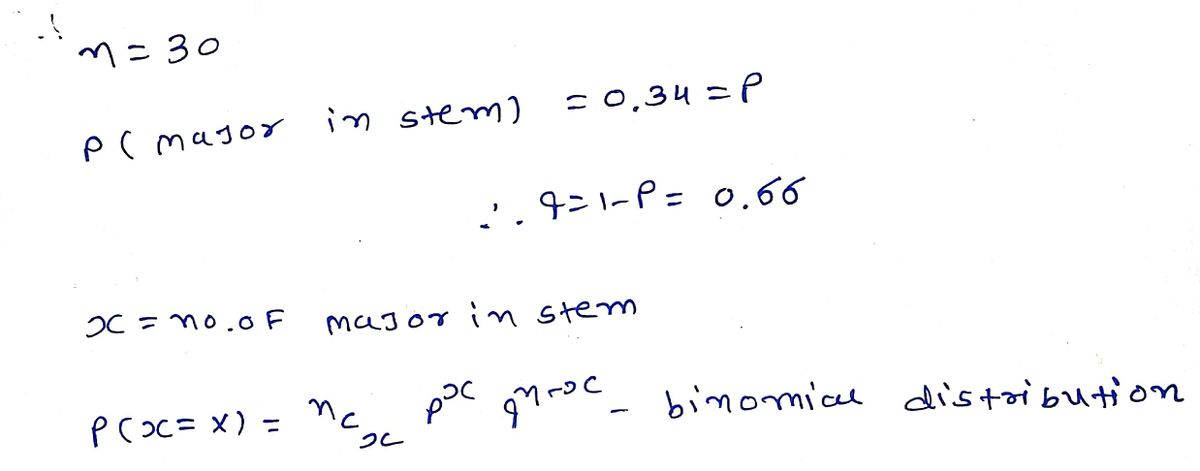 ∴
n = 30
P( major in stem) = 0.34 = P
∴ q = 1-P = 0.66
x = no. of major in stem
P(x = X) = ⁿCₓ pˣ qⁿ⁻ˣ - binomial distribution